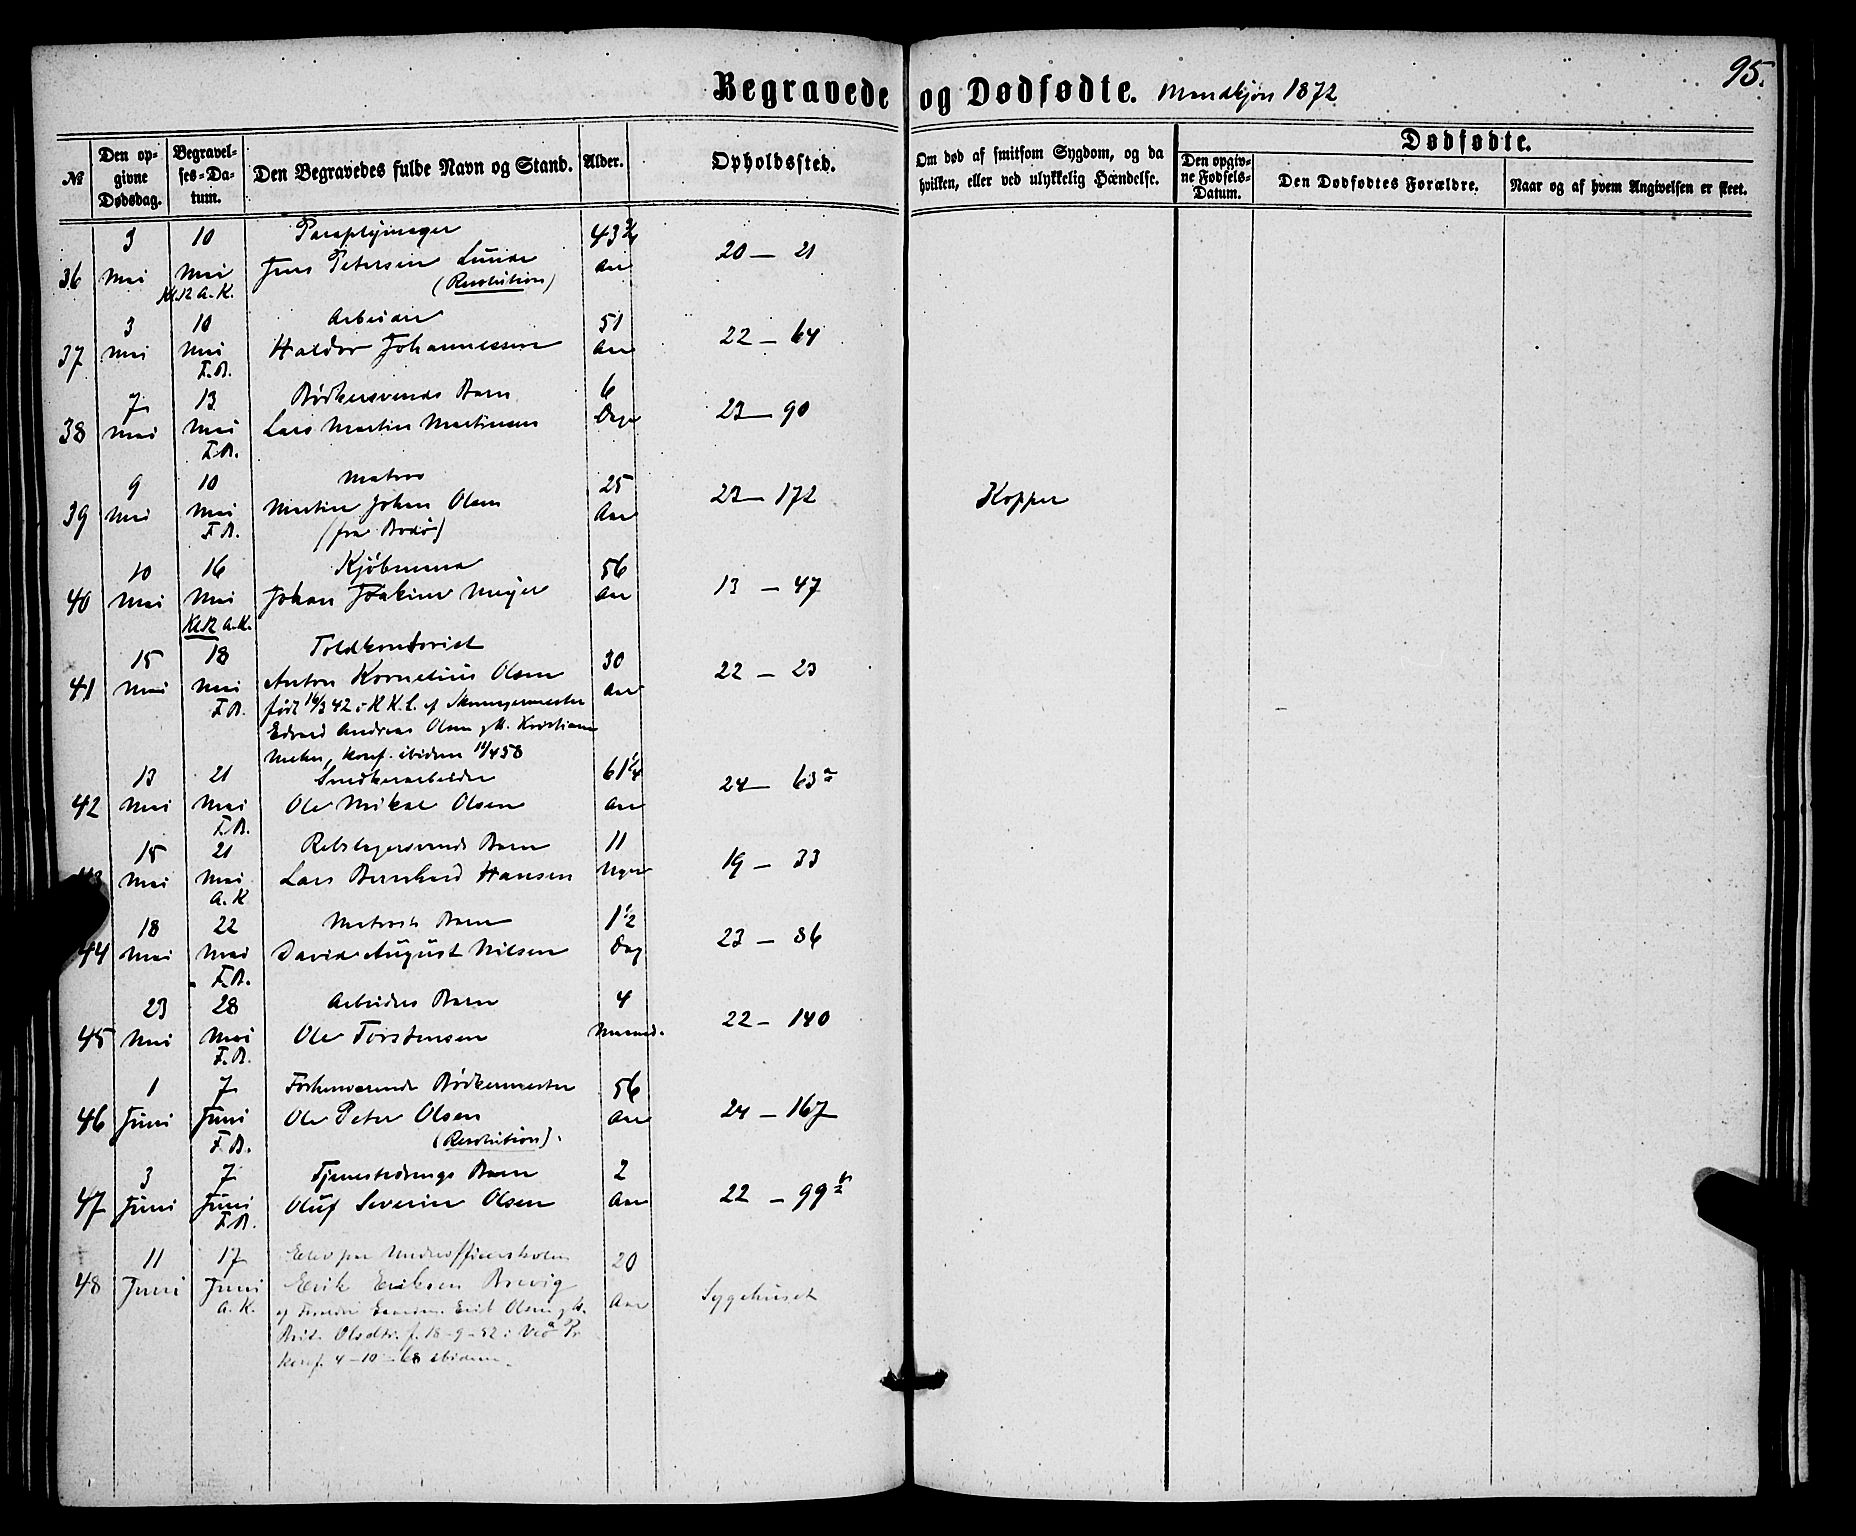 Begravede og Dødfødte. Mandkjøn 1872
95.
№ Den opgivne Dødsdag. Begravelses-Datum. Den Begravedes fulde Navn og Stand. Alder. Opholdssted. Om død af smitsom Sygdom, og da hvilken, eller ved ulykkelig Hændelse. Dødfødte.
Den opgivne Fødsels-Datum. Den Dødfødtes Forældre. Naar og af hvem Angivelsen er skeet.
3 10 Paraplymager 43 3/4
36 Mai Mai Jens Petersen Lunde Aar 20 — 21
A.K. (Resolution)
3 10 Arbeider 51
37 Mai Mai Haldor Johannessen Aar 22 — 64
F.B.
7 13 Bødkersvends Barn 6
38 Mai Mai Lars Martin Martinsen Dage 23 — 90
F.B.
9 10 Matros 25
39 Mai Mai Martin Johan Olsen Aar 23 — 172 Kopper
F.B. (fra Bodø)
10 16 Kjøbmand 56
40 Mai Mai Johan Joakim Meyer Aar 13 — 47
A.K.
15 18 Toldkontorist 30
41 Mai Mai Anton Kornelius Olsen Aar 22 — 23
F.B. født 16/3 42 i K.K. af Skomagermester
Edvard Andreas Olsen g H. Kristiane
konf. ibidem 11/4 58
13 21 Snedkerarbeider 61 1/4
42 Mai Mai Ole Mikal Olsen Aar 24 — 63 a
F.B.
15 21 Rebslagersvends Barn 11
43 Mai Mai Lars Bernhard Hansen Uger 19 — 33
A.K.
18 22 Matros's Barn 1 1/2
44 Mai Mai David August Nilsen Dag 23 — 86
F.B.
23 28 Arbeiders Barn 4
45 Mai Mai Ole Torstensen Maaned. 22 — 140
F.B.
1 7 Forhenværende Bødkermester 56
46 Juni Juni Ole Peter Olsen Aar 24 — 167
F.B. (Resolution).
3 7 Tjenestedrengs Barn 2
47 Juni Juni Oluf Severin Olsen Aar 22 — 99
F.B.
11 17 Elev paa Underofficerskolen 20
48 Juni Juni Erik Eriksen Brevig Aar Sygehuset
A.K. af Forældre Erik Olsen g H.
Olsdtr. f. 18-9-52 i Veø Pr.
konf. 4-10-68 ibidem.